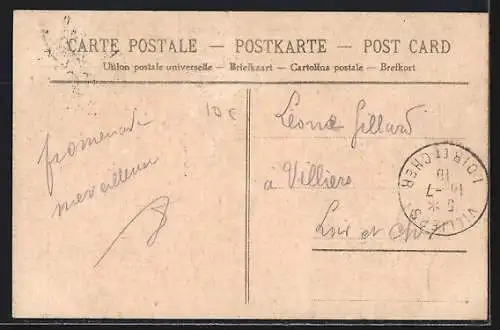 CARTE POSTALE — POSTKARTE — POST CARD
Union postale universelle — Briefkaart — Cartolina postale — Brefkort
10€
promenade
merveilleuse
Léonce Gillard
à Villiers
Loir et Cher
VILLIERS
5 *
10 -7
10
LOIR ET CHER